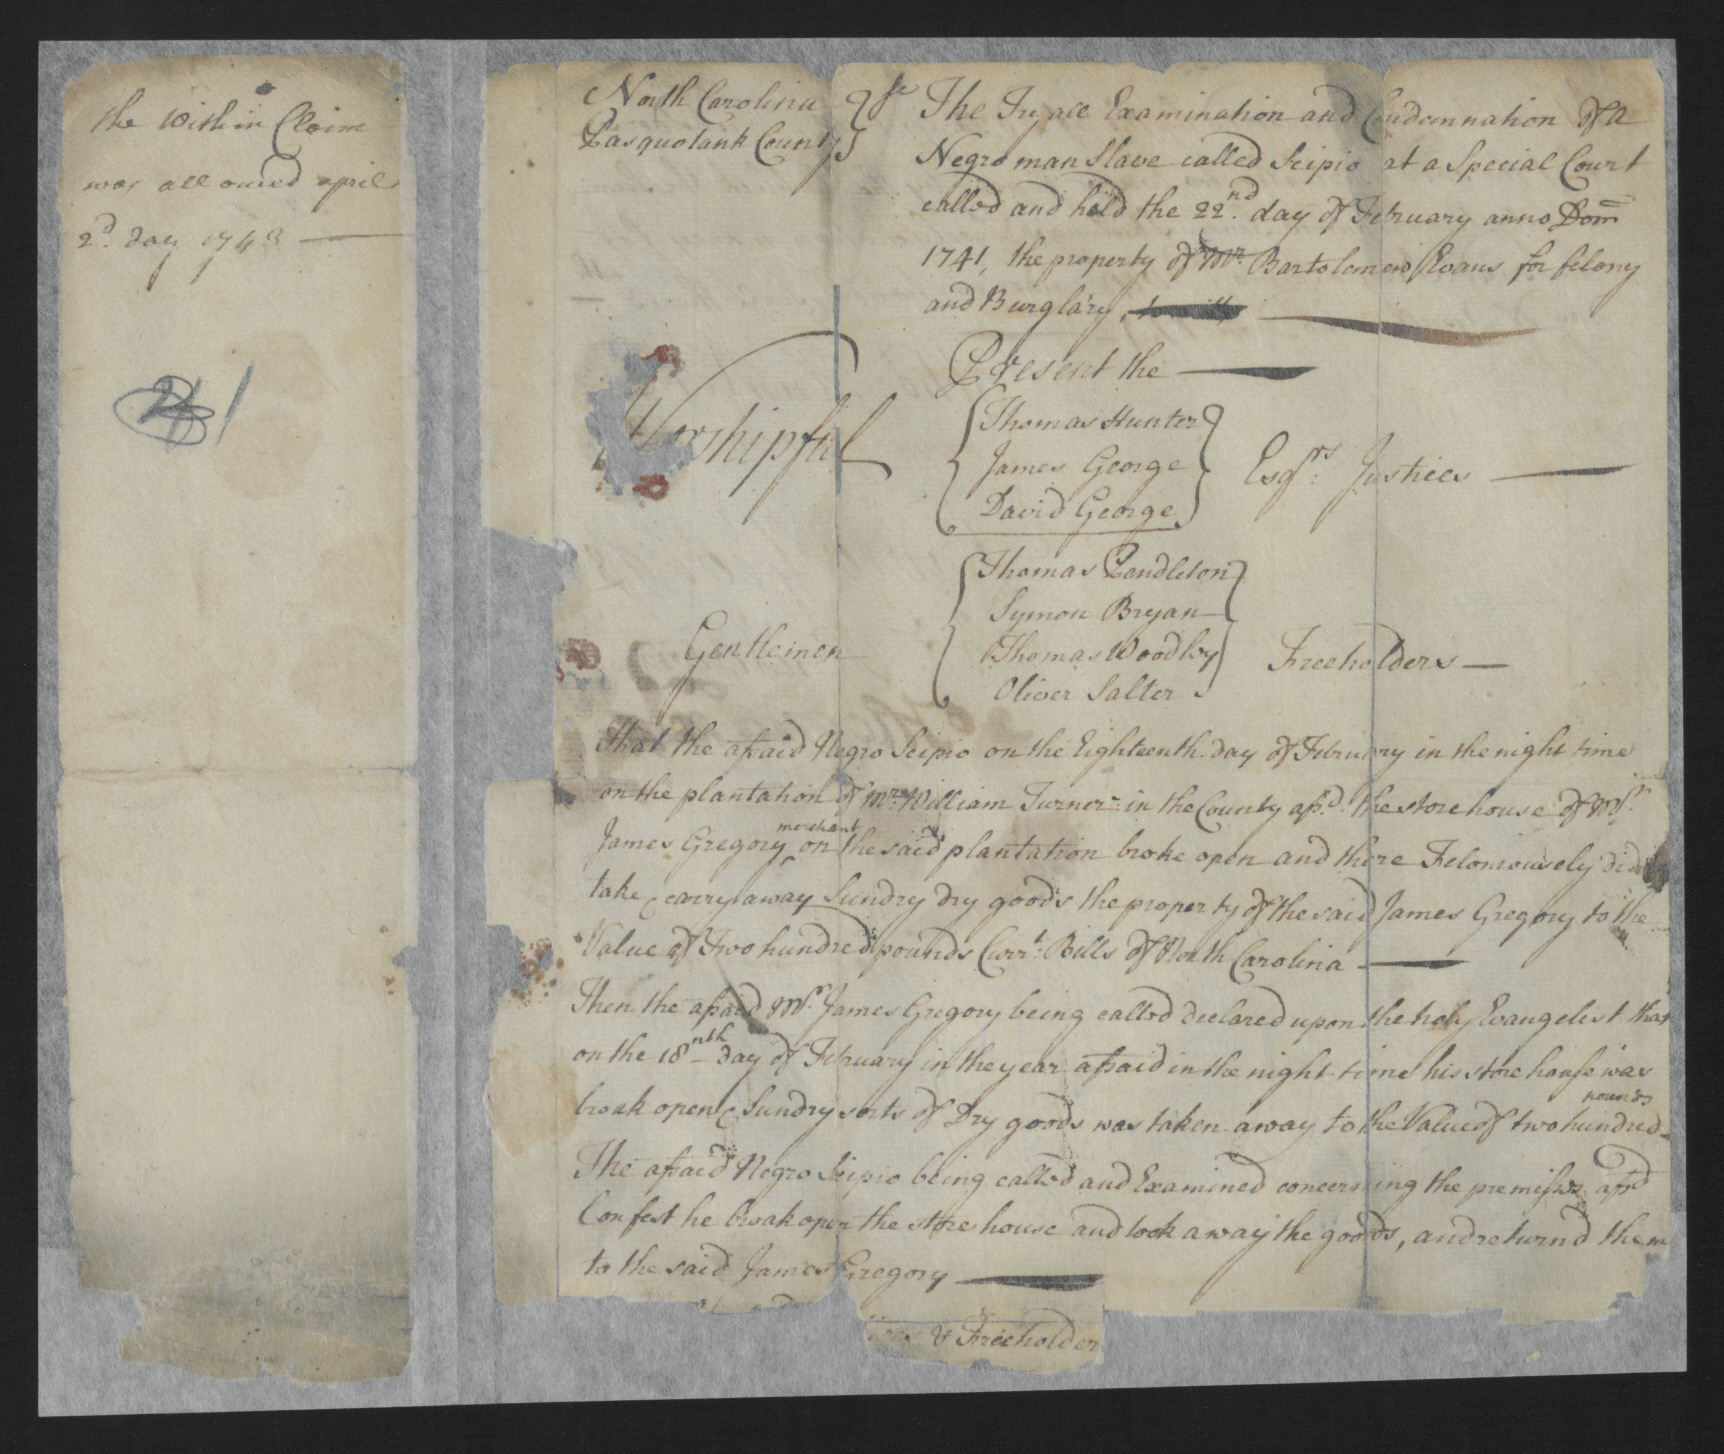 the within Claim
was allowed april
2d. day 1743
21
North Carolina
Pasquotank County
Sc
The Tryall Examination and Condemnation of a
Negro man Slave called Scipio at a Special Court
called and held the 22nd. day of February anno Dom
1741, the property of Mr. Bartolemew Evans for felony
and Burglary,
Present the
Worshipful
Thomas Hunter
James George
David George
Esqrs. Justices
Gentlemen
Thomas Pendleton
Symon Bryan
Thomas Woodley
Oliver Salter
Freeholders
That the afsaid Negro Scipio on the Eighteenth day of February in the night time
on the plantation of Mrs. William Turner in the County afsd. the store house of Mr.
James Gregory merchant on the said plantation broke open and there Feloniousely did
take & carry away Sundry dry goods the property of the said James Gregory to the
Value of Two hundred pounds Curt. Bills of North Carolina
Then the afsaid Mr. James Gregory being called declared upon the holy Evangelist that
on the 18nth day of February in the year afsaid in the night time his store house was
broak open & Sundry sorts of Dry goods was taken away to the Value of two hundred pounds
The afsaid Negro Scipio being called and Examined concerning the premises afsd
Confest he broak open the store house and took away the goods, and returnd them
to the said James Gregory
& Freeholder